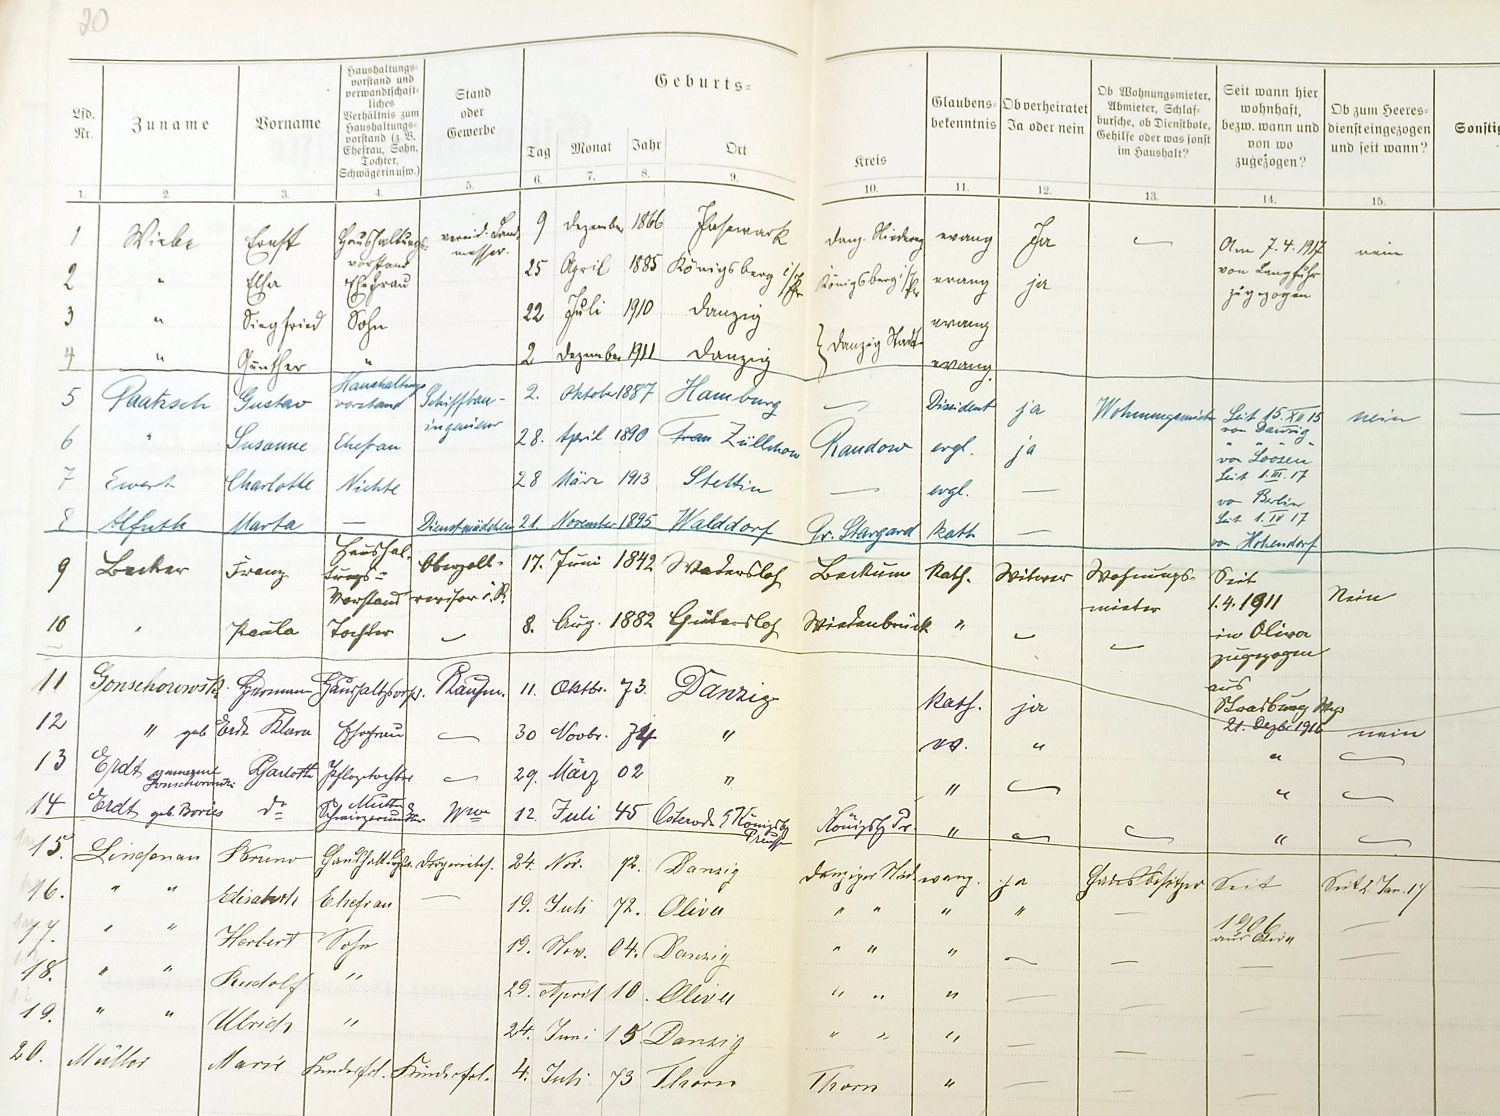 20
Lfd. Nr.
Zuname
Vorname
Haushaltungs-
vorstand und
verwandtschaft-
liches
Verhältnis zum
Haushaltungs-
vorstand (z. B.
Ehefrau, Sohn,
Tochter,
Schwägerin usw.)
Stand
oder
Gewerbe
Geburts-
Tag Monat Jahr Ort
Kreis
Glaubens-
bekenntnis
Ob verheiratet
Ja oder nein
Ob Wohnungsmieter,
Abmieter, Schlaf-
bursche, ob Dienstbote,
Gehilfe oder was sonst
im Haushalt?
Seit wann hier
wohnhaft,
bezw. wann und
von wo
zugezogen?
Ob zum Heeres-
dienst eingezogen
und seit wann?
Sonstig
1. 2. 3. 4. 5. 6. 7. 8. 9. 10. 11. 12. 13. 14. 15.
1 Wiebe Ernst Haushaltungs-
vorstand vereid. Land-
messer. 9 Dezember 1866 Pasewark Danz. Niederung evang Ja — Am 7.4.1917
von Langfuhr
zugezogen nein
2 " Elsa Ehefrau 25 April 1885 Königsberg i/Pr Königsberg i/Pr evang ja
3 " Siegfried Sohn 22 Juli 1910 Danzig } Danzig Stadt evang
4 " Günther " 2 Dezember 1911 Danzig evang.
5 Paatzsch Gustav Haushaltungs
vorstand Schiffbau-
ingenieur 2. Oktober 1887 Hamburg — Dissident ja Wohnungsmieter Seit 15.XII 15
von Danzig nein —
6 " Susanne Ehefrau 28. April 1890 Züllchow Randow evgl. ja " " "
von Loosen
7 Ewert Charlotte Nichte 28 März 1913 Stettin — evgl. — Seit 1.III.17
von Berlin
8 Alfuth Marta — Dienstmädchen 21. November 1895 Walddorf Pr. Stargard kath — Seit 1.IV 17
von Hohendorf
9 Becker Franz Haushal-
tungs-
Vorstand Oberzoll-
revisor i. R. 17. Juni 1842 Wadersloh Beckum kath. Witwer Wohnungs-
mieter Seit
1.4.1911
in Oliva
zugezogen
aus
Strasburg Wpr Nein
10 " Paula Tochter — 8. Aug. 1882 Gütersloh Wiedenbrück " — —
11 Gonschorowski Hermann Haushaltsvorst. Kaufm. 11. Oktbr. 73. Danzig kath. ja 21. Dezbr 1916 nein
12 " geb Erdt Klara Ehefrau — 30 Novbr. 74 " ev. " " —
13 Erdt genannt
Gonschorowski Charlotte Pflegetochter — 29. März 02 " " — " —
14 Erdt geb. Bories do Schwiegermutter Wwe 12. Juli 45 Osterode Königsbg Pr. " — — " —
15. Lindenau Bruno 24. Nov. 72. Danzig Danziger evang. ja Hausbesitzer Seit
1906
aus Seit 2 Jan. 17
16. " " Elisabeth Ehefrau — 19. Juli 72. Oliva " " " " — —
17. " " Herbert Sohn 19. Nov. 04. Danzig " " " — — — —
18. " " Rudolf " 29. April 10. Oliva " " " — — — —
19. " " Ulrich " 24. Juni 15 Danzig " " " — — — —
20. Müller Marie Kinderfrl. Kinderfrl. 4. Juli 73 Thorn Thorn " — — — —